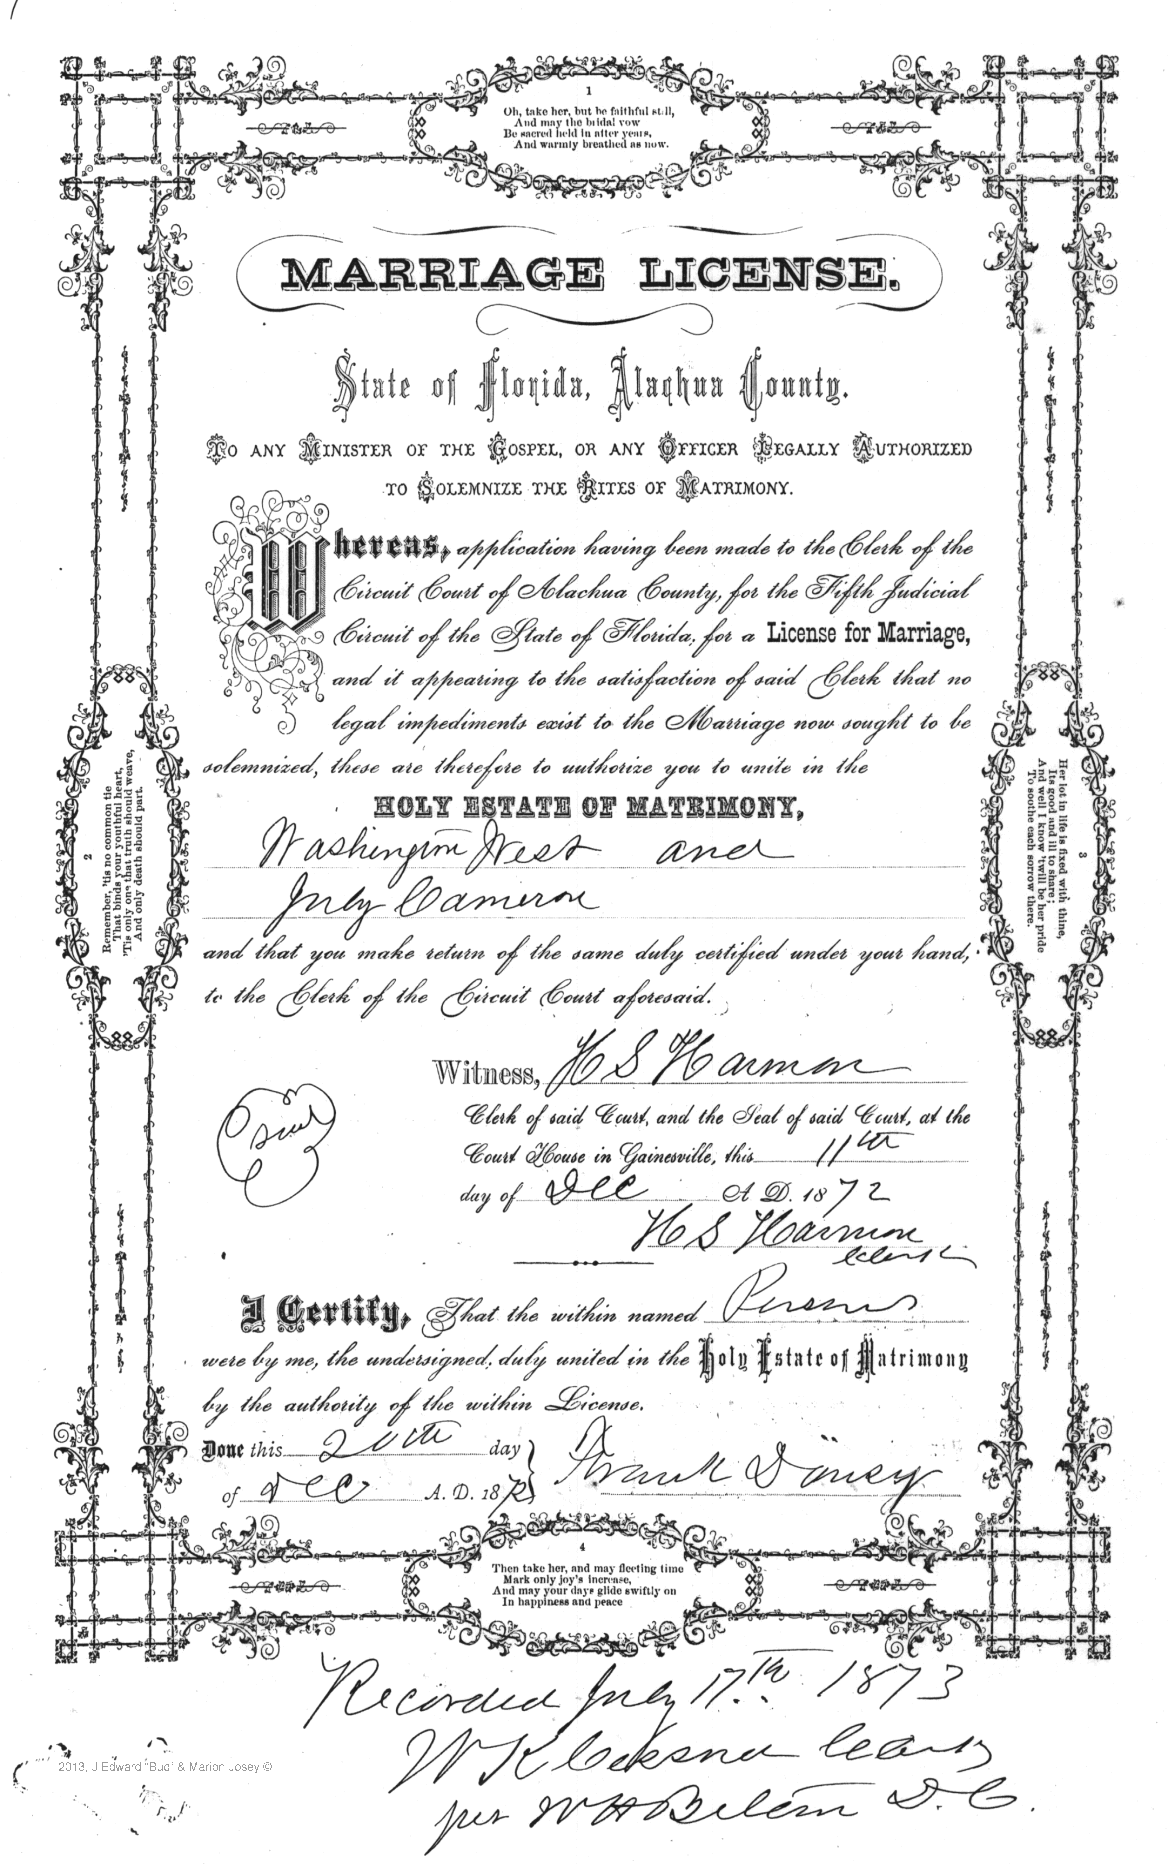 1
Oh, take her, but be faithful still,
And may the bridal vow
Be sacred held in after years,
And warmly breathed as now.
MARRIAGE LICENSE.
State of Florida, Alachua County.
TO ANY MINISTER OF THE GOSPEL, OR ANY OFFICER LEGALLY AUTHORIZED
TO SOLEMNIZE THE RITES OF MATRIMONY.
Whereas, application having been made to the Clerk of the
Circuit Court of Alachua County, for the Fifth Judicial
Circuit of the State of Florida, for a License for Marriage,
and it appearing to the satisfaction of said Clerk that no
legal impediments exist to the Marriage now sought to be
solemnized, these are therefore to authorize you to unite in the
HOLY ESTATE OF MATRIMONY,
Washington West and
July Cameron
and that you make return of the same duly certified under your hand,
to the Clerk of the Circuit Court aforesaid.
2
Remember, 'tis no common tie
That binds your youthful heart,
'Tis only one that truth should weave,
And only death should part.
3
Her lot in life is fixed with thine,
Its good and ill to share;
And well I know 'twill be her pride
To soothe each sorrow there.
Witness, H S Harmon
Clerk of said Court, and the Seal of said Court, at the
Court House in Gainesville, this 11th
day of Dec A. D. 1872
H S Harmon
Clerk
Seal
I Certify, That the within named Persons
were by me, the undersigned, duly united in the Holy Estate of Matrimony
by the authority of the within License.
Done this 20th day
of Dec A. D. 1872
Frank
4
Then take her, and may fleeting time
Mark only joy's increase,
And may your days glide swiftly on
In happiness and peace
Recorded July 17th 1873
W K Cessna Clerk
per W H Belton D. C.
2013, J Edward "Bud" & Marion Josey ©